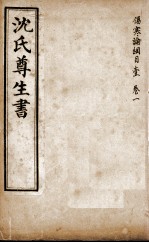 傷寒論綱目壹 卷一
沈氏尊生書